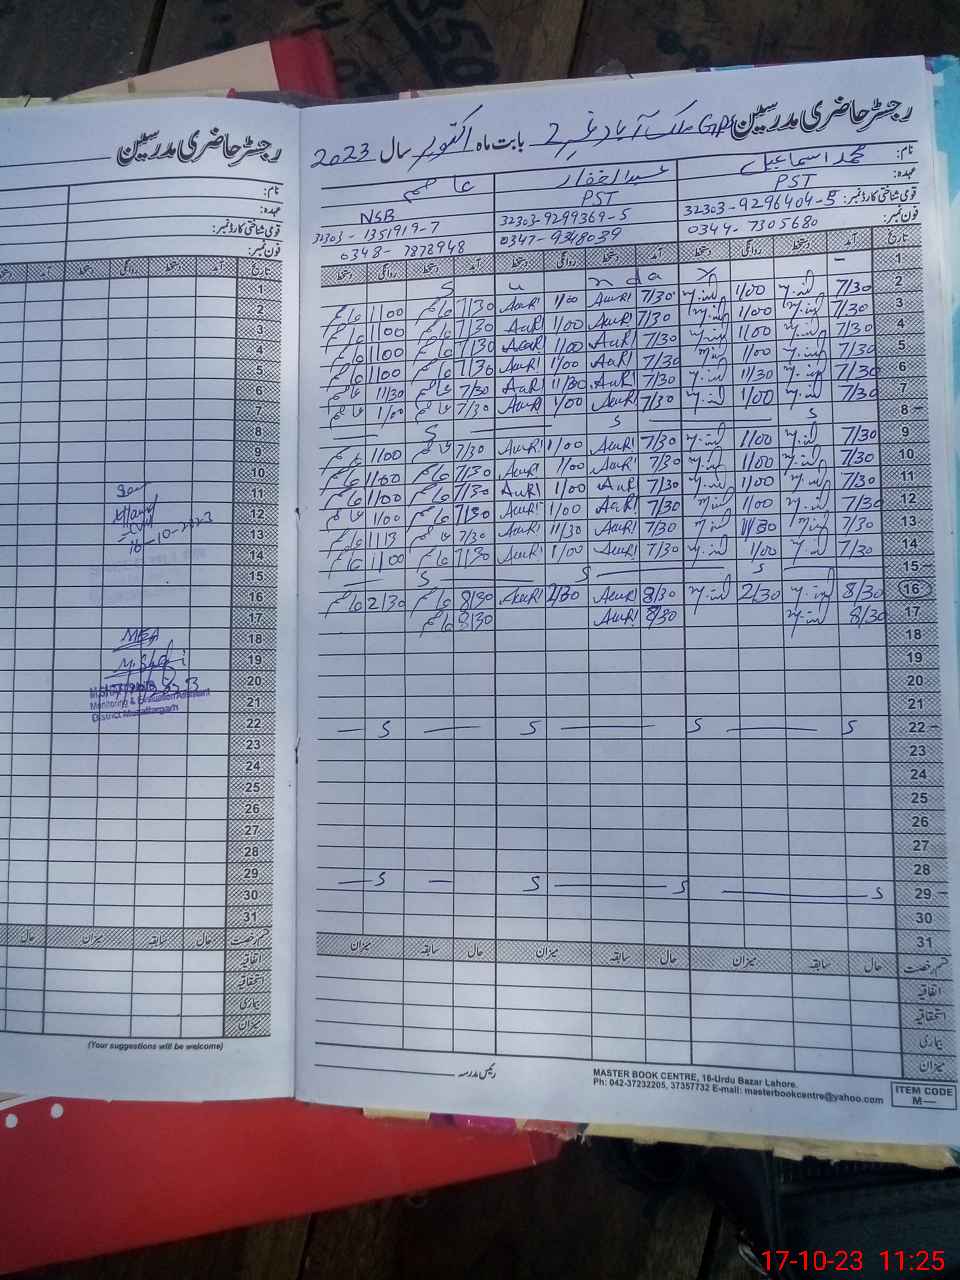 رجسٹر حاضری مدرسین
نام:
عہدہ:
قومی شناختی کارڈ نمبر:
فون نمبر:
تاریخ آمد دستخط روانگی دستخط آمد دستخط
1
2
3
4
5
6
7
8
9
10
11
12
13
14
15
16
17
18
19
20
21
22
23
24
25
26
27
28
29
30
31
16-10-2023
MEA
M. Shafi
Monitoring & Evaluation Assistant
District Muzaffargarh
قسم رخصت حال سابقہ میزان حال
اتفاقیہ
استحقاقیہ
بیماری
میزان
(Your suggestions will be welcome)
رجسٹر حاضری مدرسین GPS ملک آباد نمبر 2 بابت ماہ اکتوبر سال 2023
نام: محمد اسماعیل عبدالغفار عاصم
عہدہ: PST PST NSB
قومی شناختی کارڈ نمبر: 32303-9296404-5 32303-9299369-5 32303-1351919-7
فون نمبر: 0344-7305680 0347-9348039 0348-7878948
تاریخ آمد دستخط روانگی دستخط آمد دستخط روانگی دستخط آمد دستخط روانگی دستخط
1 S u n d a y
2 7/30 1/00 7/30 1/00 7/30 عاصم 1/00 عاصم
3 7/30 1/00 7/30 1/00 7/30 عاصم 1/00 عاصم
4 7/30 1/00 7/30 1/00 7/30 عاصم 1/00 عاصم
5 7/30 1/00 7/30 1/00 7/30 عاصم 1/00 عاصم
6 7/30 11/30 7/30 11/30 7/30 عاصم 11/30 عاصم
7 7/30 1/00 7/30 1/00 7/30 عاصم 1/00 عاصم
8 S S S
9 7/30 1/00 7/30 1/00 7/30 عاصم 1/00 عاصم
10 7/30 1/00 7/30 1/00 7/30 عاصم 1/00 عاصم
11 7/30 1/00 7/30 1/00 7/30 عاصم 1/00 عاصم
12 7/30 1/00 7/30 1/00 7/30 عاصم 1/00 عاصم
13 7/30 11/30 7/30 11/30 7/30 عاصم عاصم
14 7/30 1/00 7/30 1/00 7/30 عاصم 1/00 عاصم
15 S S S
16 8/30 2/30 8/30 2/30 8/30 عاصم 2/30 عاصم
17 8/30 8/30 8/30 عاصم
18
19
20
21
22 S S S S
23
24
25
26
27
28
29 S S S S
30
31
قسم رخصت حال سابقہ میزان حال سابقہ میزان حال سابقہ میزان
اتفاقیہ
استحقاقیہ
بیماری
میزان
رئیس مدرسہ
MASTER BOOK CENTRE, 16-Urdu Bazar Lahore.
Ph: 042-37232205, 37357732 E-mail: masterbookcentre@yahoo.com
ITEM CODE
M—
17-10-23 11:25